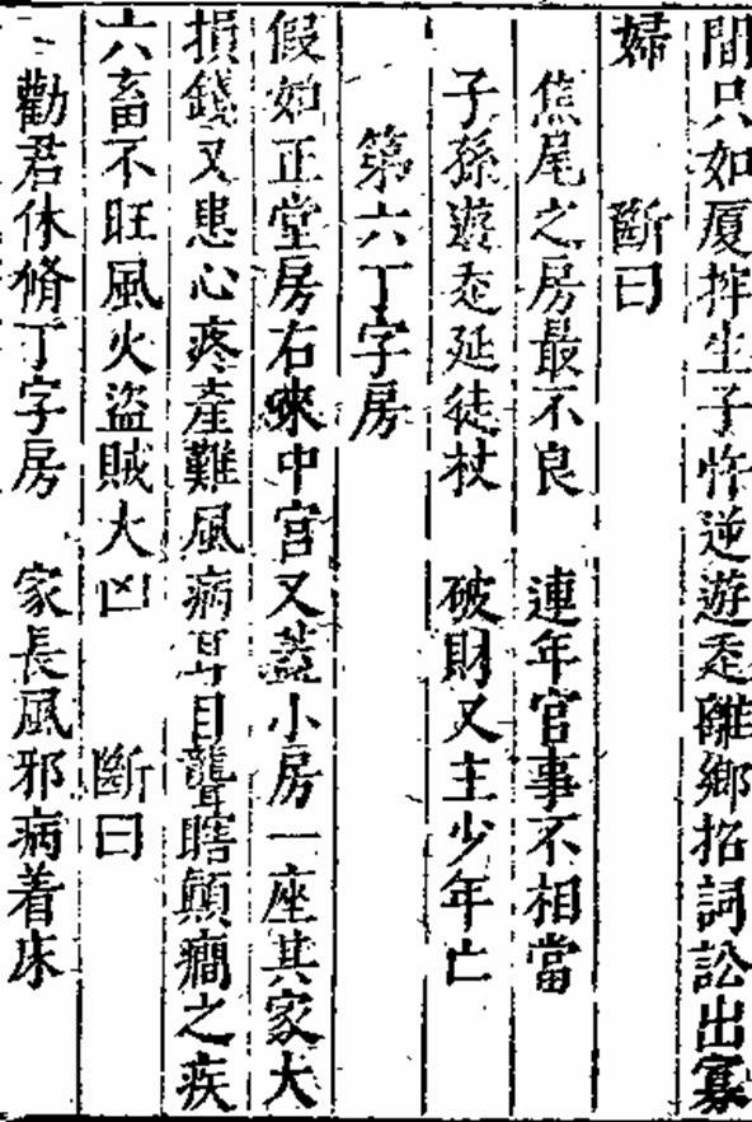 間只如厦捽生子忤逆遊走離鄉招詞訟出寡
婦　斷曰
焦尾之房最不良　連年官事不相當
子孫遊走延徒杖　破財又主少年亡
第六丁字房
假如正堂房右來中宫又蓋小房一座其家大
損錢又患心疼產難風病耳目聾瞎顛癎之疾
六畜不旺風火盜賊大凶　斷曰
勸君休脩丁字房　家長風邪病着床